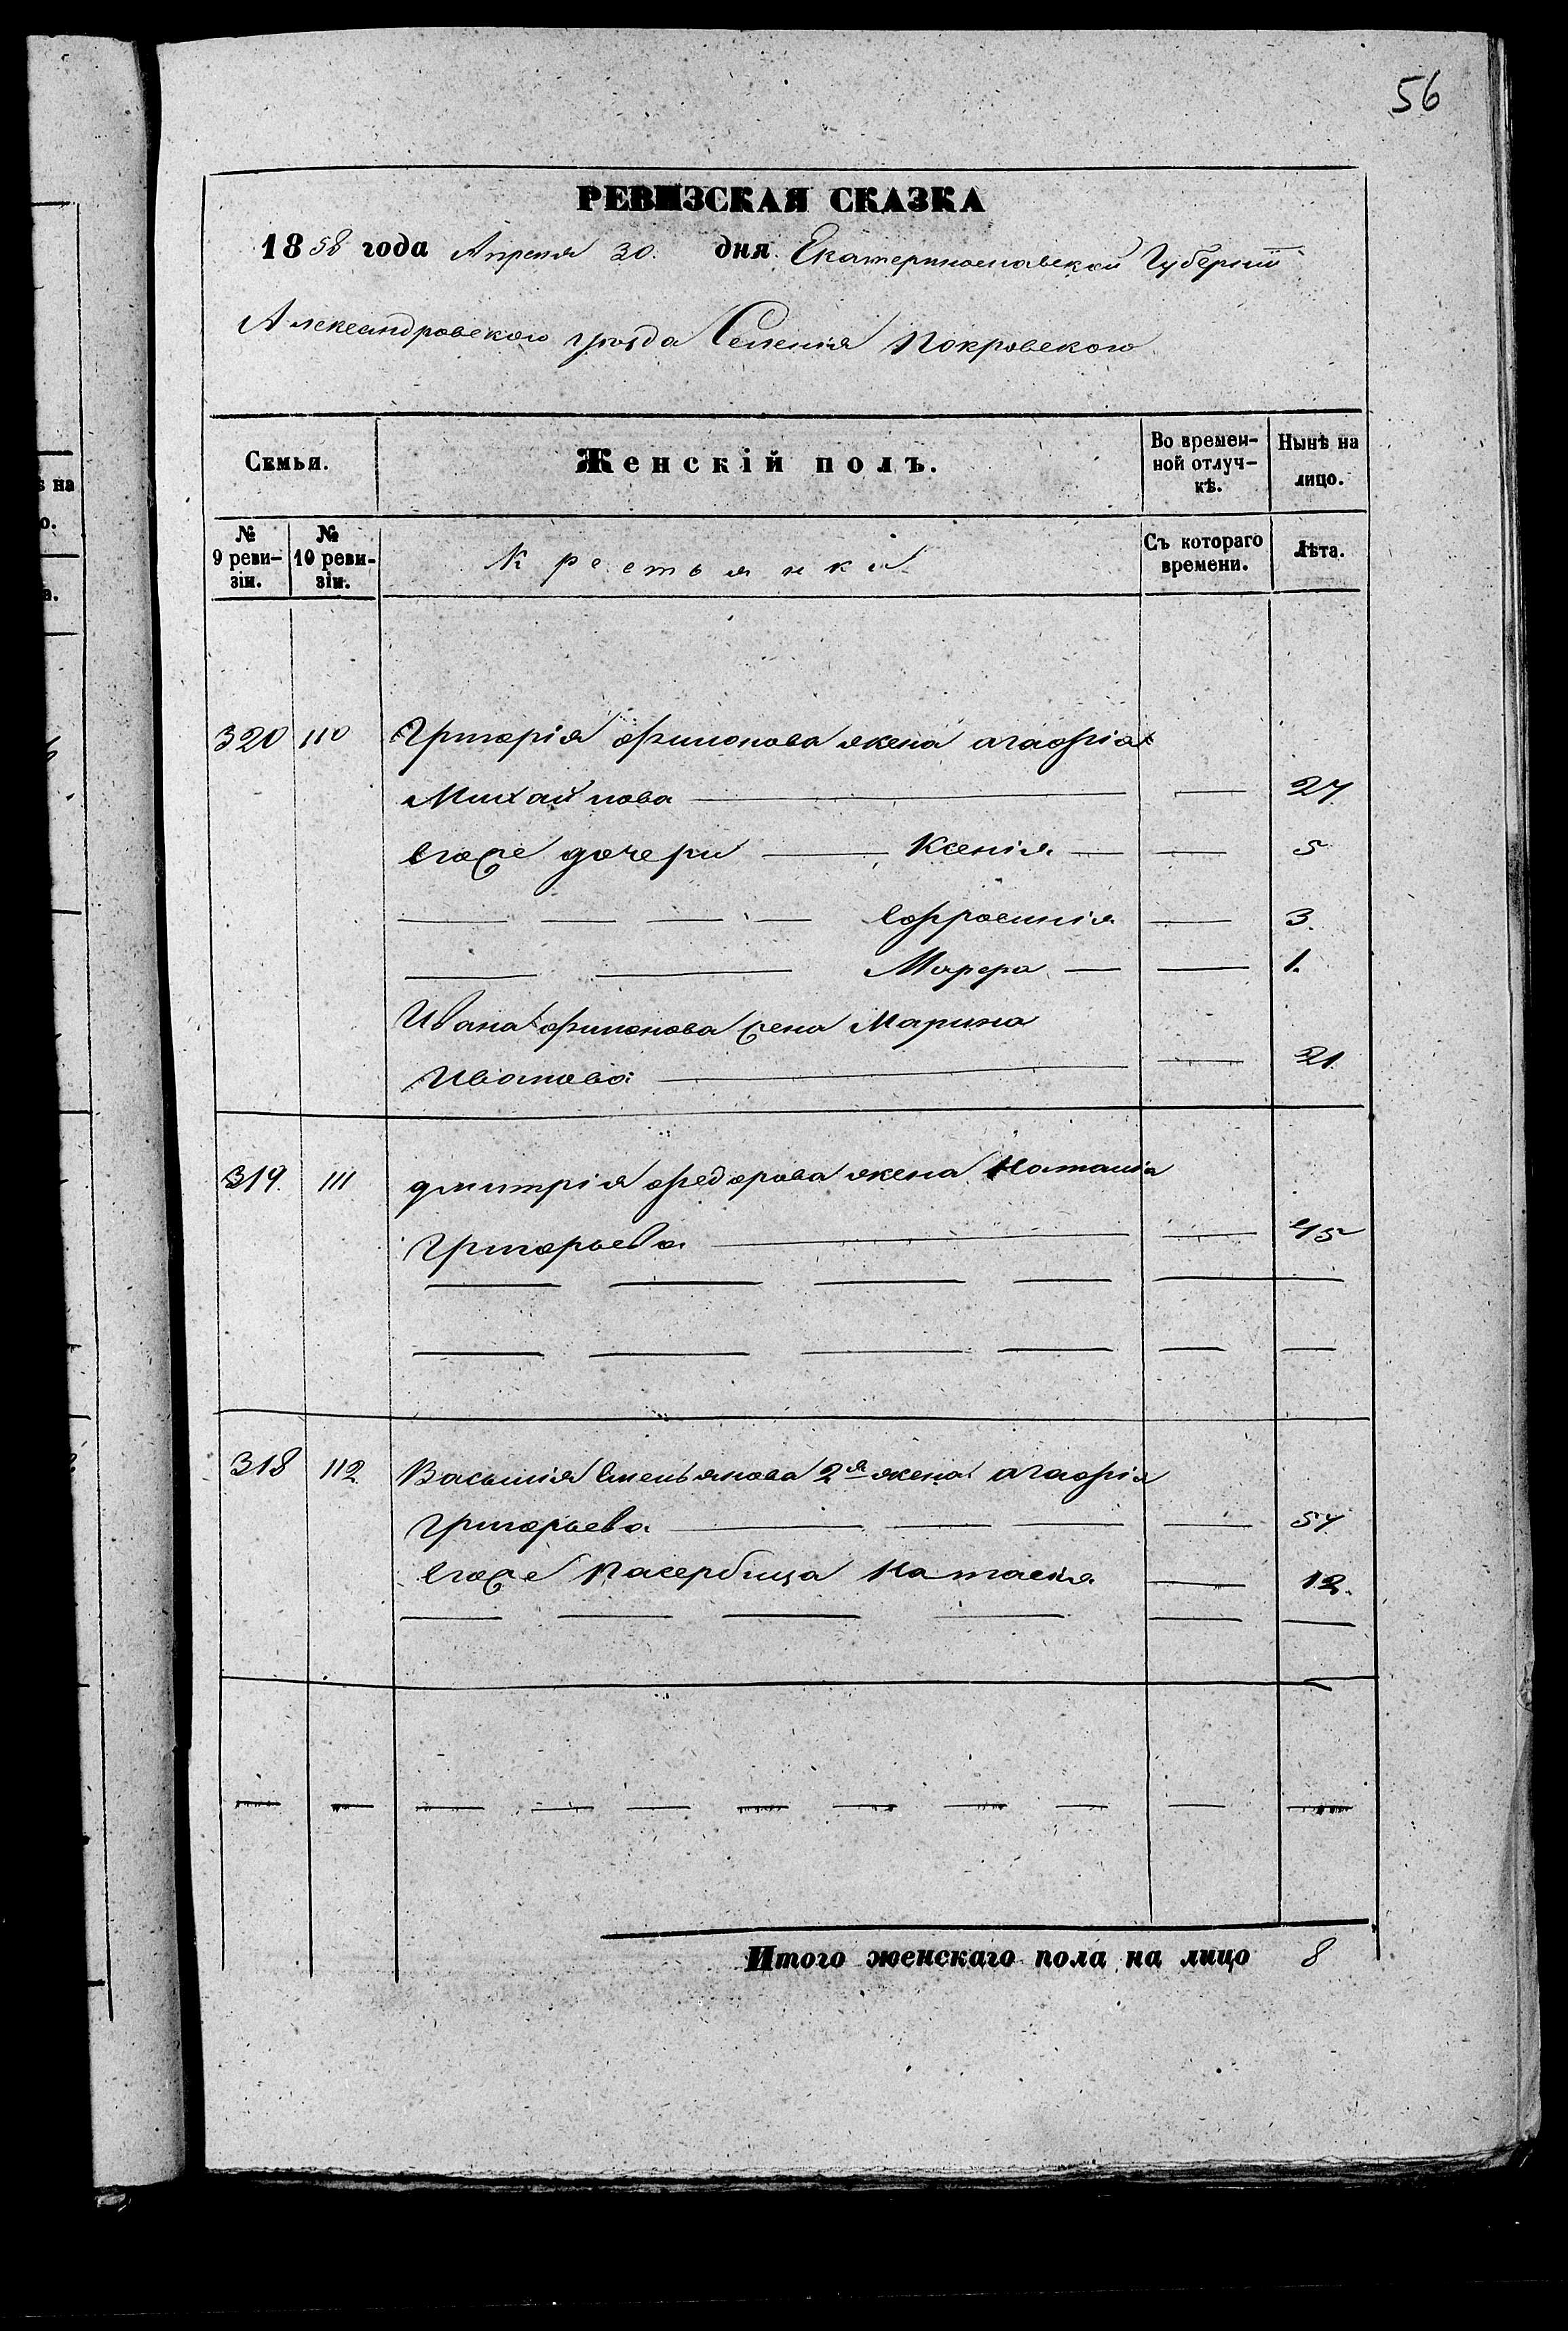 56
РЕВИЗСКАЯ СКАЗКА
1858 года Апреля 30. дня. Екатеринославской Губерніи
Александровского уѣзда Селенія Покровского
Семьи. Женскій полъ. Во времен- Нынѣ на
ной отлуч- лицо.
кѣ.
№ № Съ котораго Лѣта.
9 реви- 10 реви- Крестьянки времени.
зіи. зіи.
320 110 Григорія Филонова жена Агафія
Михайлова 27.
Егоже дочери Ксенія 5
Ефросинія 3.
Марфа 1.
Ивана Филонова жена Марина
Иванова 21
319. 111 Дмитрія Федорова жена Наталія
Григорьева 45
318 112 Василія Емельянова 2я жена Агафія
Григорьева 57
Егоже пасербица Настасія 12.
Итого женскаго пола на лицо 8